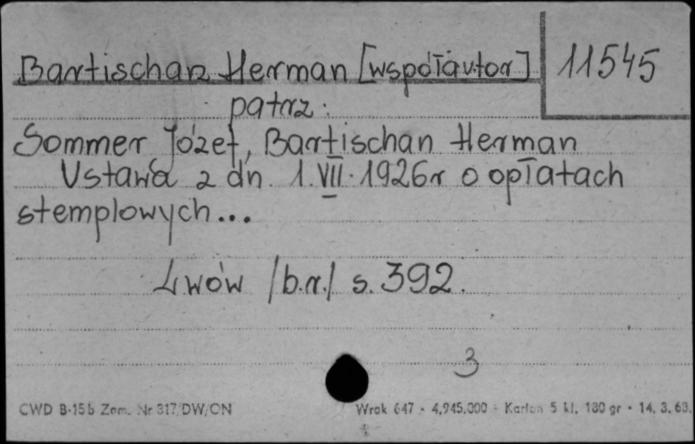 Bartischan Herman [współautor] 11545
patrz:
Sommer Józef, Bartischan Herman
Ustawa z dn. 1.VII.1926r o opłatach
stemplowych...
Lwów /b.r./ s. 392.
3
CWD B-15b Zam. Nr 317/DW/ON Wrak 647 - 4,945,000 - Karton 5 kl. 180 gr - 14. 3. 63.